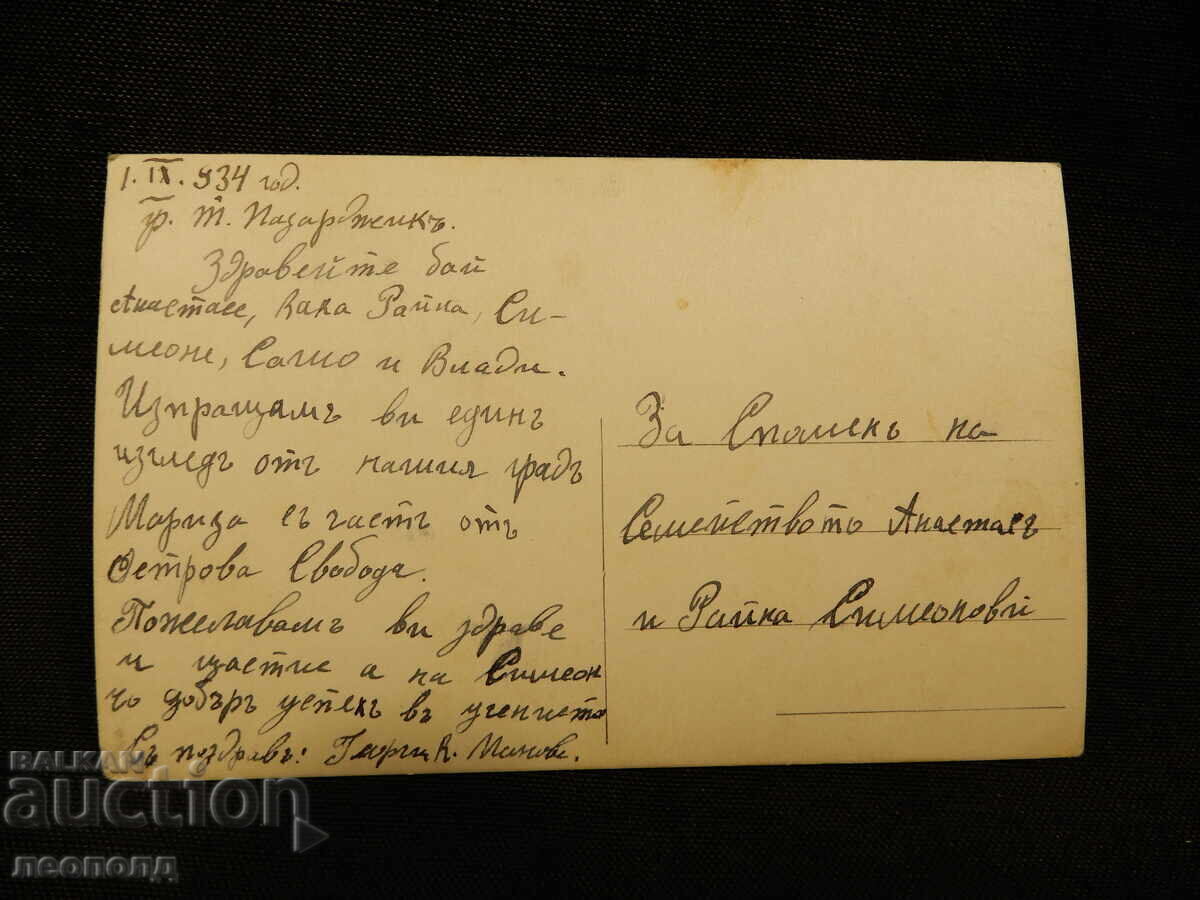 1. IX. 934 год.
гр. Т. Пазарджикъ.
Здравейте бай
Анастасе, Кака Райна, Си-
меоне, Сашо и Влади.
Изпращамъ ви единъ
изгледъ отъ нашия градъ
Марица съ частъ отъ
Острова Свобода.
Пожелавамъ ви здраве
и щастие а на Симеон
чо добъръ успехъ въ учението
Съ поздравъ: Георги К. Манове.
За Споменъ на
Семейството Анастасъ
и Райна Симеонови
BALKAN
auction
леополд